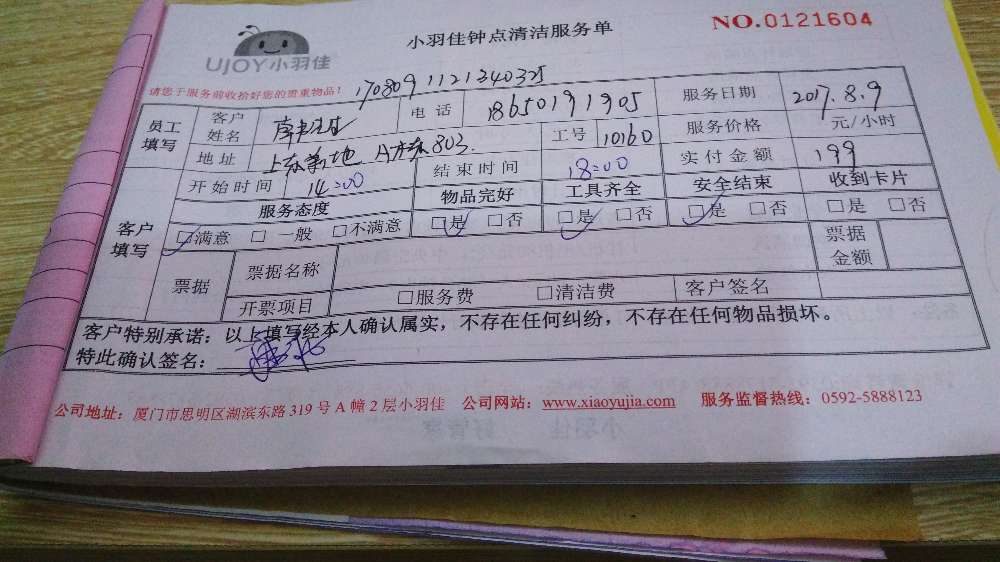 小羽佳钟点清洁服务单
NO.0121604
UJOY小羽佳
请您于服务前收拾好您的贵重物品!
170809112134032
员工填写
客户姓名
电话 18650191905
服务日期 2017.8.9
地址 803
工号 10160
服务价格 元/小时
开始时间 14:00
结束时间 18:00
实付金额 199
收到卡片
客户填写
服务态度
物品完好
工具齐全
安全结束
□满意 □一般 □不满意
□是 □否
□是 □否
□是 □否
□是 □否
票据
票据名称
票据金额
开票项目
□服务费
□清洁费
客户签名
客户特别承诺:以上填写经本人确认属实,不存在任何纠纷,不存在任何物品损坏。
特此确认签名:
公司地址:厦门市思明区湖滨东路319号A幢2层小羽佳 公司网站:www.xiaoyujia.com 服务监督热线:0592-5888123